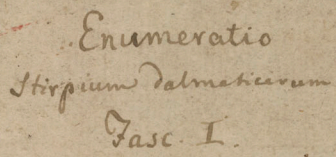 Enumeratio
Stirpium Dalmaticarum
Fasc. I.